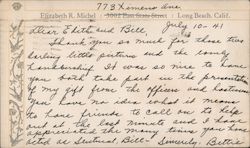 773 Ximeno Ave.
Elizabeth R. Michel 3002 East State Street Long Beach, Calif.
July 10-41
Dear Edith and Bill,
Thank you so much for those two
darling little pictures and the lovely
handkerchief. It was so nice to have
you both take part in the presentation
of my gift from the officers and hostesses
You have no idea what it means
to have friends to call on to help
out at the last minute and I have
appreciated the many times you have
acted as Sentinel, Bill - Sincerely, Bettie